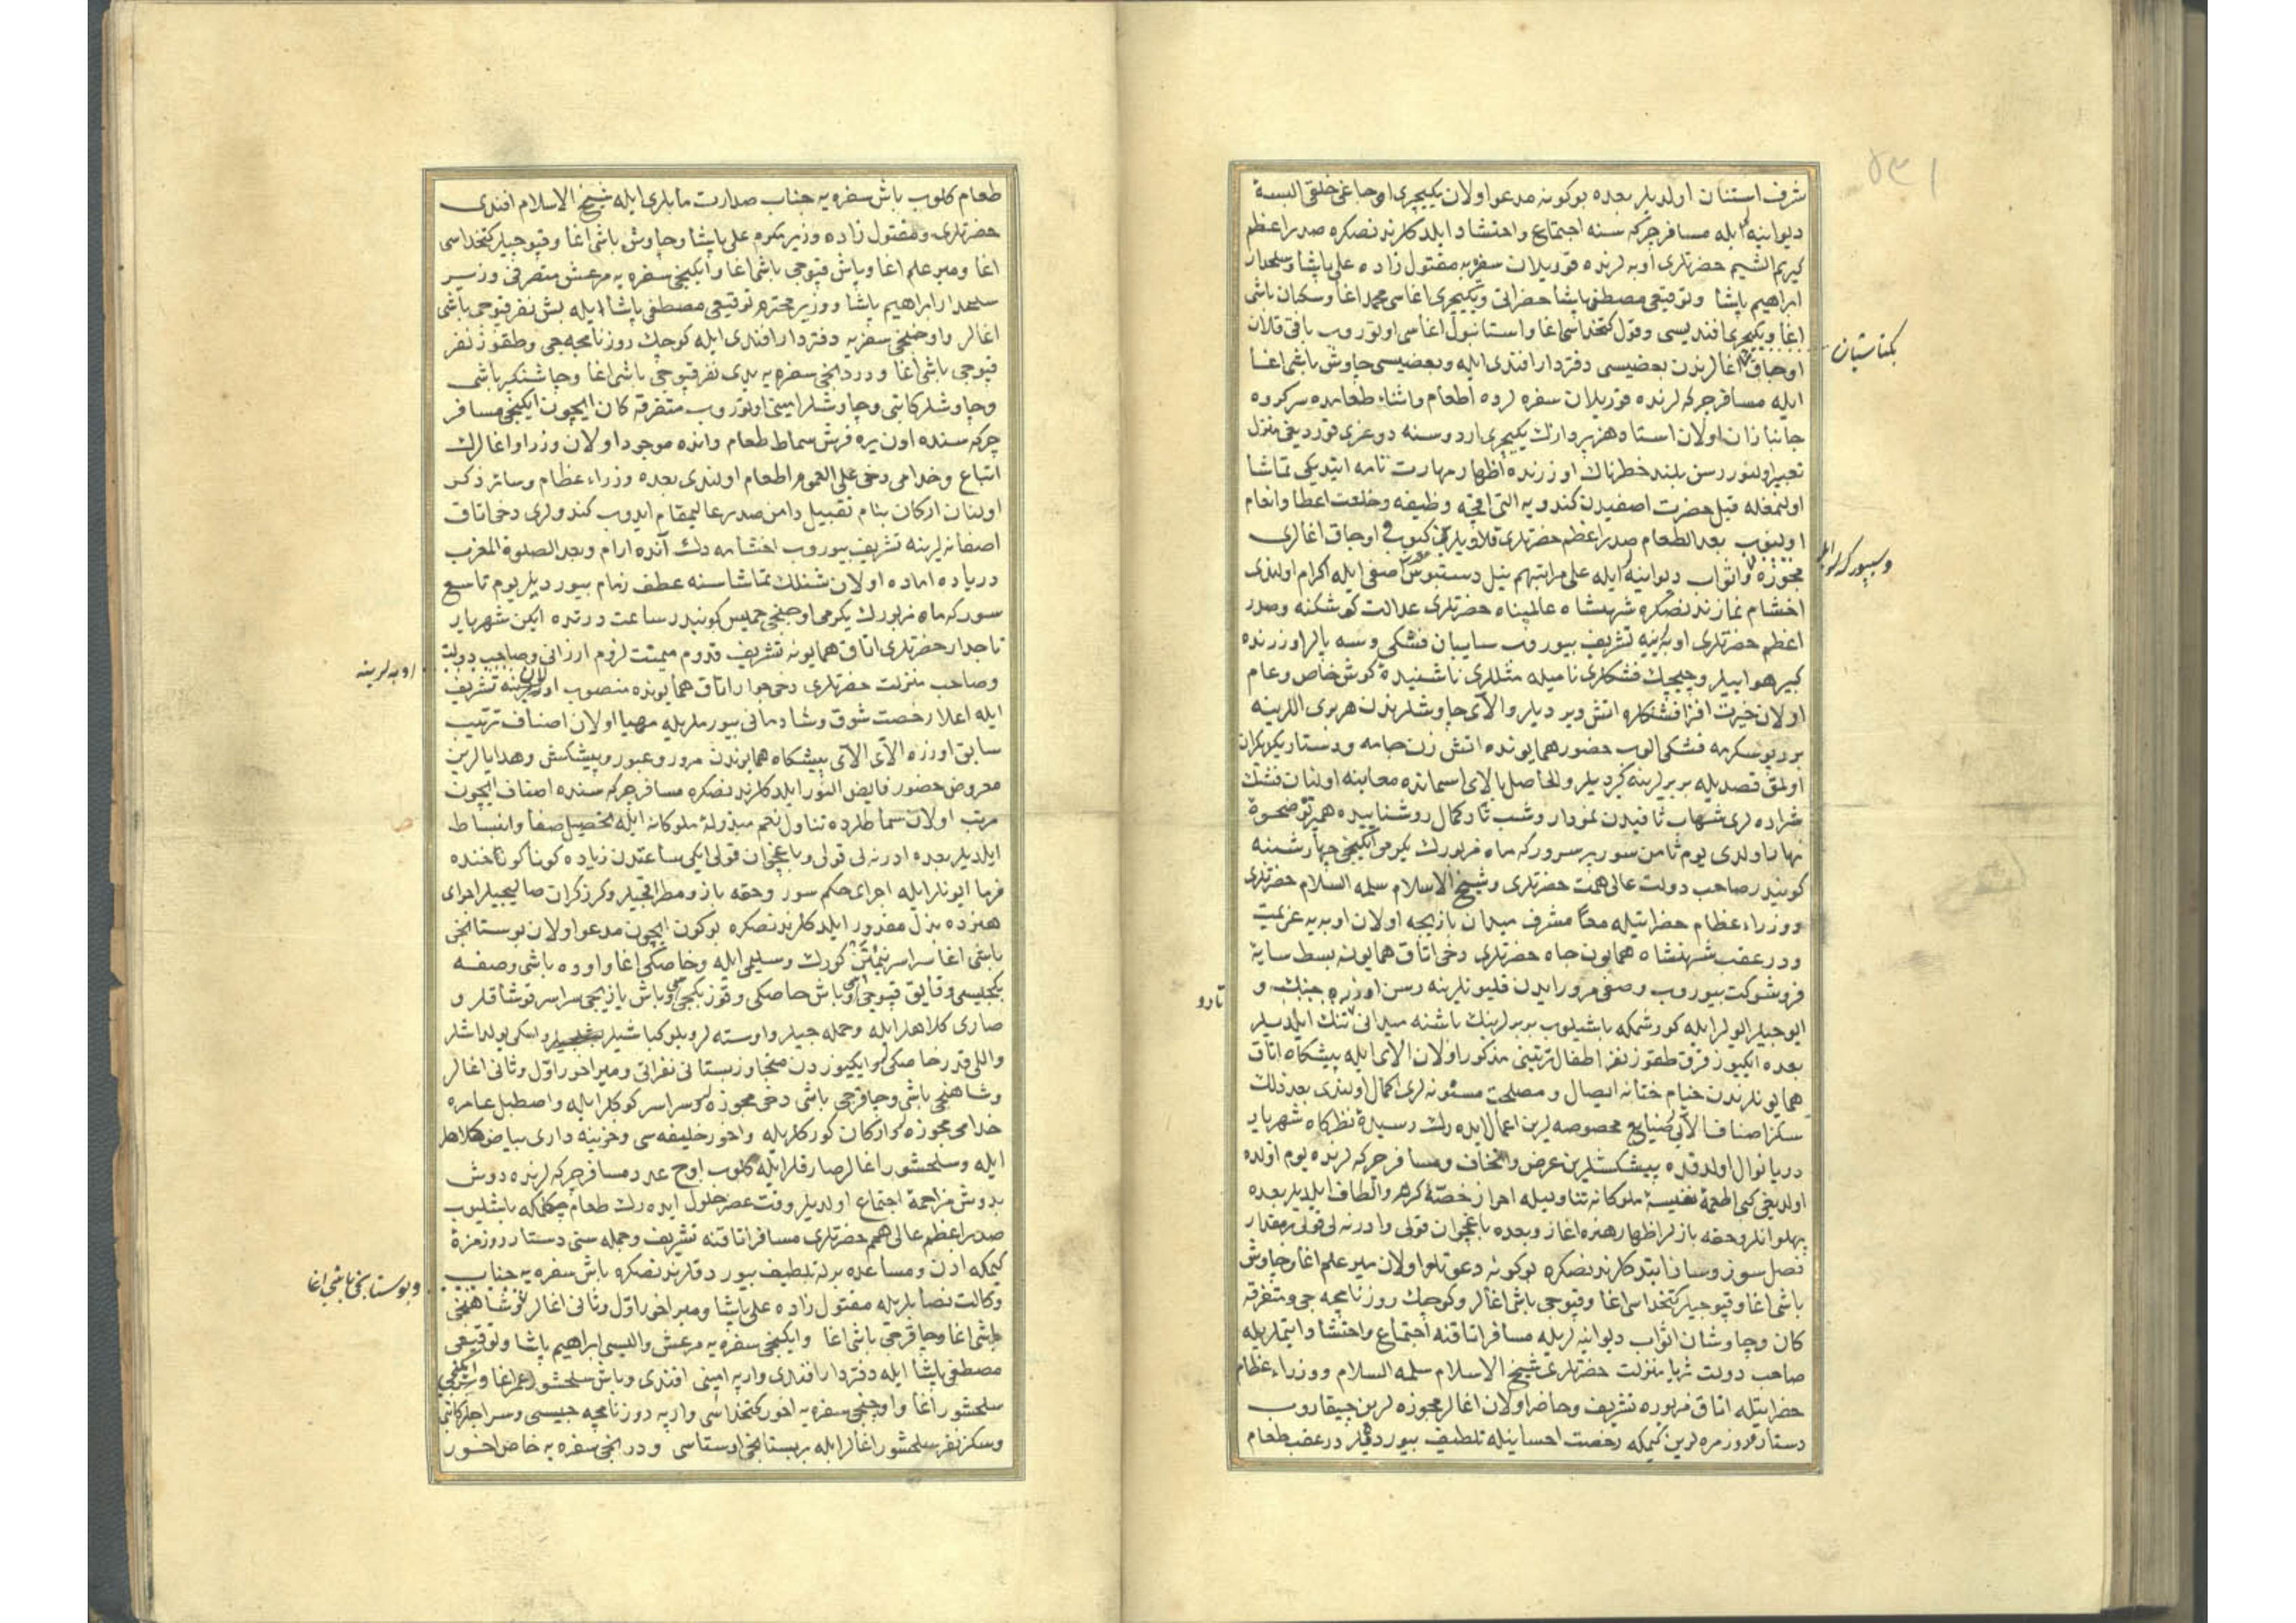 شرف استنان اولدیلر بعده بوکونه مدعو اولان یکیچری اوجاغی خلقی البسهٔ
دیوانیه لر ایله مسافر چرکه سنه اجتماع واحتشاد ایلدکلرندنصکره صدر اعظم
کریم الشیم حضرتلری اوبه لرنده قوریلان سفره یه مقتول زاده علی پاشا وسلحدار
ابراهیم پاشا وتوقیعی مصطفی پاشا حضراتی ویکیچری اغاسی محمد اغا وسکبان باشی
اغا ویکیچری افندیسی وقول کتخداسی اغا واستانبول اغاسی اوتوروب باقی قلان
بکتاشیان
اوجاق اغالرندن بعضیسی دفتردار افندی ایله وبعضیسی چاوش باشی اغا
ایله مسافر چرکه لرنده قوریلان سفره لرده اطعام واثناء طعامده سرکرده
جانبازان اولان استاد هنرپردازک یکیچری اردوسنه دوغری قوردیغی منزل
تعبیر اولنور رسن بلند خطرناک اوزرنده اظهار مهارت تامه ایتدیکی تماشا
اولنمغله قبل حضرت اصفیدن کندویه التی اقچه وظیفه وخلعت اعطا وانعام
اولنوب بعد الطعام صدر اعظم حضرتلری قلاویلرین کیوب اوجاق اغالری
مجوزه واثواب دیوانیه لر ایله علی مراتبهم نیل دستبوس اصفی ایله اکرام اولندی
اخشام نمازندنصکره شهنشاه عالمپناه حضرتلری عدالت کوشکنه وصدر
اعظم حضرتلری اوبه یینه تشریف بیوروب سایبان فشکی وسه پالر اوزرنده
کبیر هواییلر وچیچک فشکلری نامیله مثللری ناشنیدهٔ کوش خاص وعام
اولان حیرت افزا فشنکلره اتش ویردیلر والای چاوشلرندن هربری اللرینه
برر یوسکرمه فشکی الوب حضور همایونده اتش زن جامه ودستار یکدیکران
اولمق قصدیله بربرلرینه کیردیلر والحاصل بالای اسمانده معاینه اولنان فشنک
شراره لری شهاب ثاقبدن نمودار وشب تار کمال روشناییده همپرتو ضحوهٔ
نهار اولدی یوم ثامن سور پر سرور که ماه مزبورک یکرمی ایکنجی چهارشنبه
کونیدر صاحب دولت عالی همت حضرتلری وشیخ الاسلام سلمه السلام حضرتلری
ووزراء عظام حضراتیله معا مشرف میدان بازیچه اولان اوبه یه عزیمت
ودر عقب شهنشاه همایون جاه حضرتلری دخی اتاق همایونه بسط سایهٔ
فروشوکت بیوروب وصفی مرور ایدن قلیونلرینه رسن اوزره جنک و
ایوجیلر ایولر ایله کورشمکه باشلیوب بربرلرینک باشنه میدانی تنک ایلدیلر
بعده ایکیوز قرق طقوز نفر اطفال ترتیبی مذکور اولان الای ایله پیشکاه اتاق
همایونلرندن خیام ختانه ایصال ومصلحت مسنونه لری اکمال اولندی بعد ذلک
سکز اصناف الای صنایع مخصوصه لرین اعمال ایده رک رسیدهٔ نظرکاه شهریار
دریا نوال اولدقده پیشکشلرین عرض واتحاف ومسافر چرکه لرنده یوم اولده
اولدیغی کبی اطعمهٔ نفیسهٔ ملوکانه تناولیله احراز حصهٔ کرم والطاف ایلدیلر بعده
پهلوانلر وحقه بازلر اظهار هنره اغاز وبعده باغچوان قولی وادرنه لی قولی بر مقدار
فصل سوز وساز ایتدکلرندنصکره بوکونه دعوتلو اولان میر علم اغا وچاوش
باشی اغا وقپوجیلر کتخداسی اغا وقپوجی باشی اغالر وکوچک روزنامچه جی ومتفرقه
کان وچاوشان اثواب دیوانیه لریله مسافر اتاقنه اجتماع واحتشاد ایتملریله
صاحب دولت ثریا منزلت حضرتلری شیخ الاسلام سلمه السلام ووزراء عظام
حضراتیله اتاق مزبوره تشریف وحاضر اولان اغالر مجوزه لرین چیقاروب
دستار روزمره لرین کیمکه رخصت احسانیله تلطیف بیوردیلر در عقب طعام
طعام کلوب باش سفره یه جناب صدارت مابلری ایله شیخ الاسلام افندی
حضرتلری ومقتول زاده وزیر مکرم علی پاشا وچاوش باشی اغا وقپوجیلر کتخداسی
اغا ومیر علم اغا وباش قپوجی باشی اغا وایکنجی سفره یه مرعش متصرفی وزیر
سلحدار ابراهیم پاشا ووزیر محترم توقیعی مصطفی پاشا ایله بش نفر قپوجی باشی
اغالر واوچنجی سفره یه دفتردار افندی ایله کوچک روزنامچه جی وطقوز نفر
قپوجی باشی اغا ودردنجی سفره یه یدی نفر قپوجی باشی اغا وچاشنکیر باشی
وچاوشلر کاتبی وچاوشلر امینی اوتوروب متفرقه کان ایچون ایکنجی مسافر
چرکه سنده اون یره فرش سماط طعام واندە موجود اولان وزرا واغالرک
اتباع وخدامی دخی علی العموم اطعام اولندی بعده وزراء عظام وسائر ذکر
اولنان ارکان بنام تقبیل دامن صدر عالیمقام ایدوب کندولری دخی اتاق
اصفانه لرینه تشریف بیوروب اخشامه دک آنده ارام وبعد الصلوة المغرب
دریاده اماده اولان شنلک تماشاسنه عطف زمام بیوردیلر یوم تاسع
سور که ماه مزبورک یکرمی اوچنجی خمیس کونیدر ساعت دردده ایکن شهریار
تاجدار حضرتلری اتاق همایونه تشریف قدوم میمنت لزوم ارزانی وصاحب دولت
وصاحب منزلت حضرتلری دخی جوار اتاق همایونده منصوب اولان
اوبه لرینه
تشریف
ایله اعلا رخصت شوق وشادمانی بیورملریله مهیا اولان اصناف ترتیب
سابق اوزره الای الای پیشکاه همایوندن مرور وعبور وپیشکش وهدایالرین
معروض حضور فایض النور ایلدکلرندنصکره مسافر چرکه سنده اصناف ایچون
مرتب اولان سماطلرده تناول نعم مبذولهٔ ملوکانه ایله تحصیل صفا وانبساط
ایلدیلر بعده ادرنه لی قولی وباغچوان قولی ایکی ساعتدن زیاده کوناکون خنده
فرما ایونلر ایله اجرای حکم سور وحقه باز ومطراقجیلر وکرزکران صالیجیلر اجرای
هنرده بذل مقدور ایلدکلرندنصکره بوکون ایچون مدعو اولان بوستانجی
باشی اغا سراسر نیمتن کورک وسلیمی ایله وخاصکی اغا واوده باشی وصفه
بکجیسی وقایق قپوجی وباش خاصکی وقوز بکجی وباش یازیجی سراسر قوشاقلر و
صاری کلاهلر ایله وحمله جیلر واوسته لر وبلوکباشیلر واسکی یولداشلر
واللی قدر خاصکی لر وایکیوز دن متجاوز بستانی نفراتی ومیر اخور اول وثانی اغالر
وشاهنجی باشی وچاقرجی باشی دخی مجوزه لر وسراسر کورکلر ایله واصطبل عامره
خدامی مجوزه لر وارکان کورکلریله واخور خلیفه سی وخزینه داری بیاض کلاهلر
ایله وسلحشور اغالر صارقلر ایله کلوب اوچ عدد مسافر چرکه لرنده دوش
بدوش مزاحمه اجتماع اولدیلر وقت عصر حلول ایده رک طعام چکلمکه باشلیوب
صدر اعظم عالی همم حضرتلری مسافر اتاقنه تشریف وجمله سنی دستار روزمرهٔ
کیمکه اذن ومساعده برله تلطیف بیوردقلرندنصکره باش سفره یه جناب
وکالت نصابلریله مقتول زاده علی پاشا ومیر اخور اول وثانی اغالر
وبوستانجی باشی اغا
وشاهنجی
باشی اغا وچاقرجی باشی اغا وایکنجی سفره یه مرعش والیسی ابراهیم پاشا وتوقیعی
مصطفی پاشا ایله دفتردار افندی وارپه امینی افندی وباش سلحشور عمر اغا وایکنجی
سلحشور اغا واوچنجی سفره یه اخور کتخداسی وارپه روزنامچه جیسی وسراجلر کاتبی
وسکز نفر سلحشور اغالر ایله بر بستانجی اوستاسی ودردنجی سفره یه خاص اخور